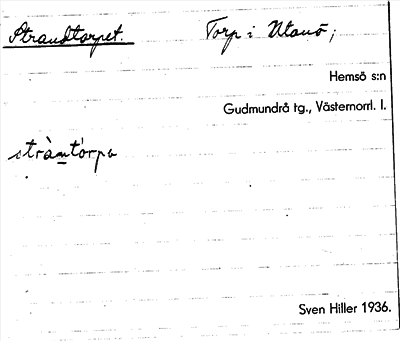 Strandtorpet. Torp i Utanö;
Hemsö s:n
Gudmundrå tg., Västernorrl. l.
stràmtórpə
Sven Hiller 1936.